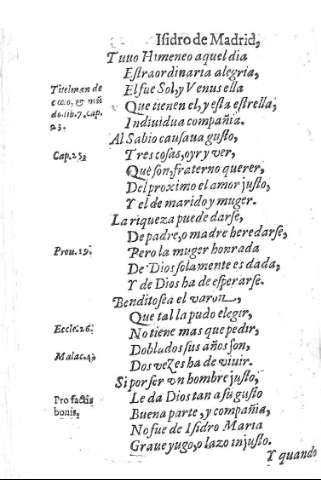 Isidro de Madrid,
Tuuo Himeneo aquel dia
Estraordinaria alegria,
El fue Sol, y Venus ella
Que tienen el, y esta estrella,
Indiuidua compañia.
Al Sabio causaua gusto,
Tres cosas, oyr y ver,
Que son, fraterno querer,
Del proximo el amor justo,
Y el de marido y muger.
La riqueza puede darse,
De padre, o madre heredarse,
Pero la muger honrada
De Dios solamente es dada,
Y de Dios ha de esperarse.
Bendito sea el varon,
Que tal la pudo elegir,
No tiene mas que pedir,
Doblados sus años son,
Dos vezes ha de viuir.
Si por ser vn hombre justo,
Le da Dios tan a su gusto
Buena parte, y compañia,
No fue de Isidro Maria
Graue yugo, o lazo injusto.
Y quando
Titelman de
do. lib. 7. cap.
23.
Cap. 25.
Prou. 19.
Eccle. 26.
Malac. 4.
Pro factis
bonis,